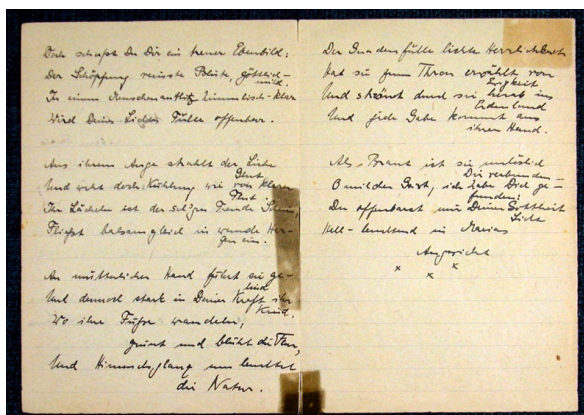 Doch schufst Du Dir ein treues Ebenbild:
Der Schöpfung reinste Blüte, göttlich-
mild.
In einem Menschenantlitz himmlisch-klar
Wird Deines Lichtes Fülle offenbar.
Aus ihrem Auge strahlt der Liebe
Glut
Und weht doch Kühlung wie von klarer
Flut.
Ihr Lächeln ist der sel'gen Freude Schein,
Fließt balsamgleich in wunde Her-
zen ein.
An mütterlicher Hand führt sie ge-
lind
Und dennoch stark in Deiner Kraft ihr
Kind.
Wo ihre Füße wandeln,
grünt und blüht die Flur,
Und Himmelsglanz umleuchtet
die Natur.
Der Gnadenfülle lichte Herrlichkeit
Hat sie zum Thron erwählt von
Ewigkeit
Und strömt durch sie herab ins
Erdenland
Und jede Gabe kommt aus
ihrer Hand.
Als Braut ist sie unlöslich
Dir verbunden –
O milder Gast, ich habe Dich ge-
funden:
Du offenbarst mir Deiner Gottheit
Licht
Hell-leuchtend in Mariens
Angesicht
x x
x